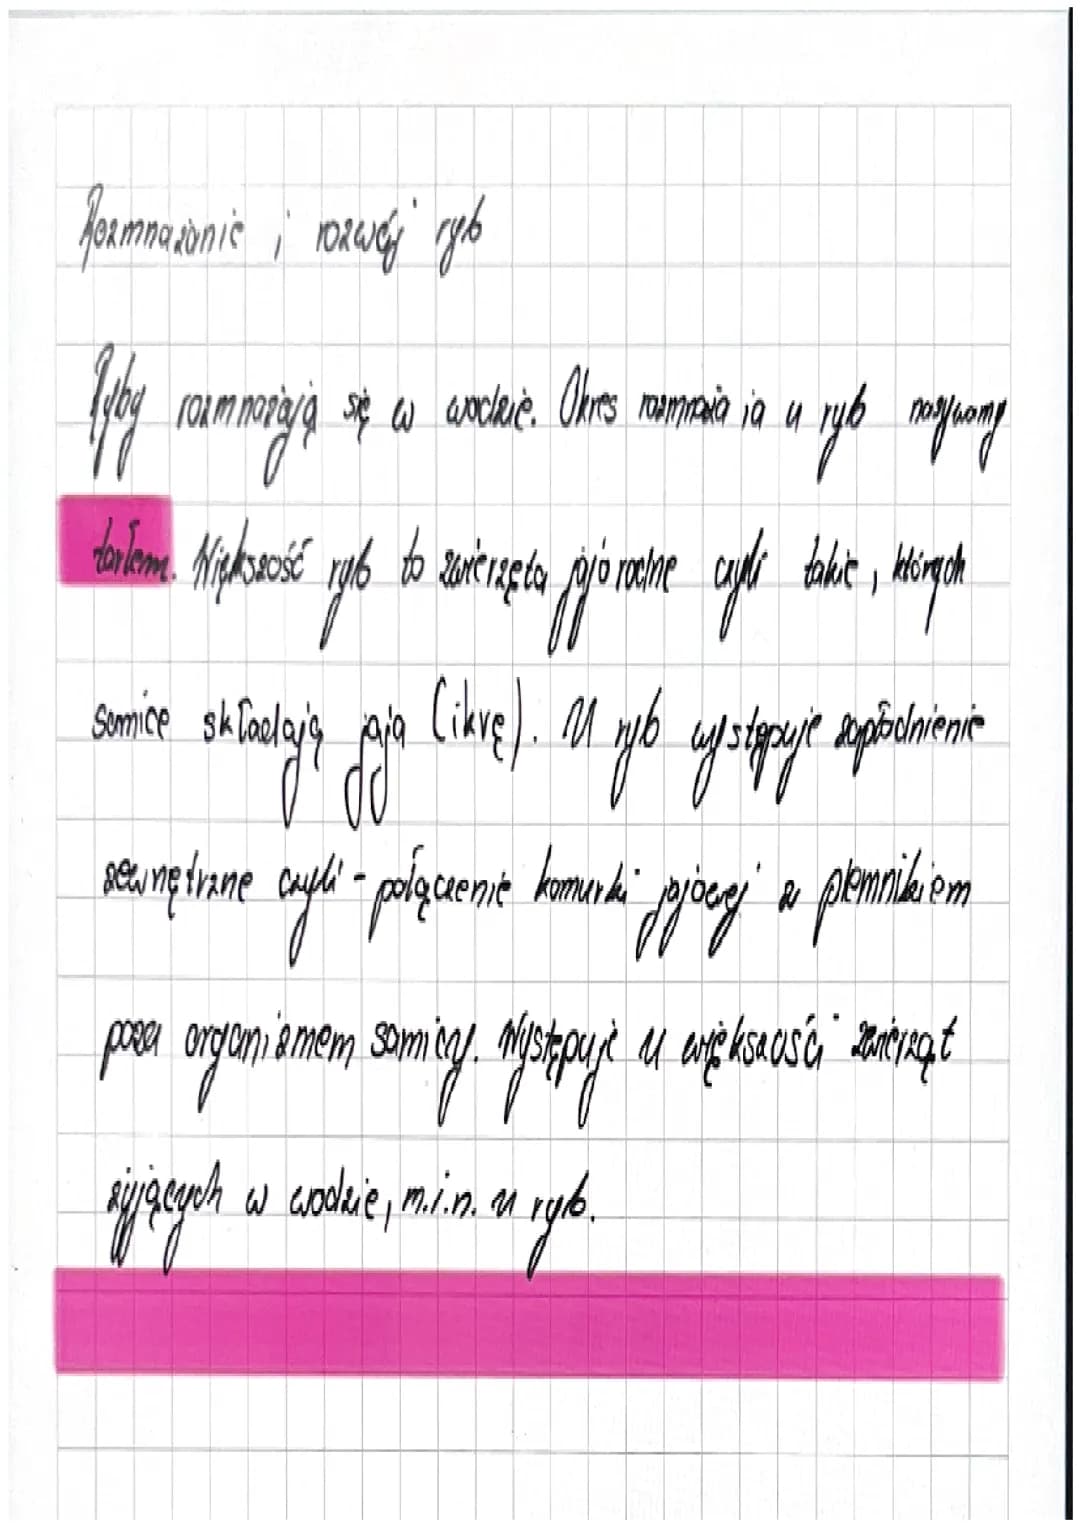 Rozmnażanie i rozwój ryb
Ryby rozmnażają się w wodzie. Okres rozmnaża ia u ryb nazywamy
tarłem. Większość ryb to zwierzęta jajorodne czyli takie, których
samice składają jaja (ikrę). U ryb występuje zapłodnienie
zewnętrzne czyli - połączenie komurki jajowej z plemnikiem
poza organizmem samicy. Występuje u większości zwierząt
żyjących w wodzie, m.i.n. u ryb.